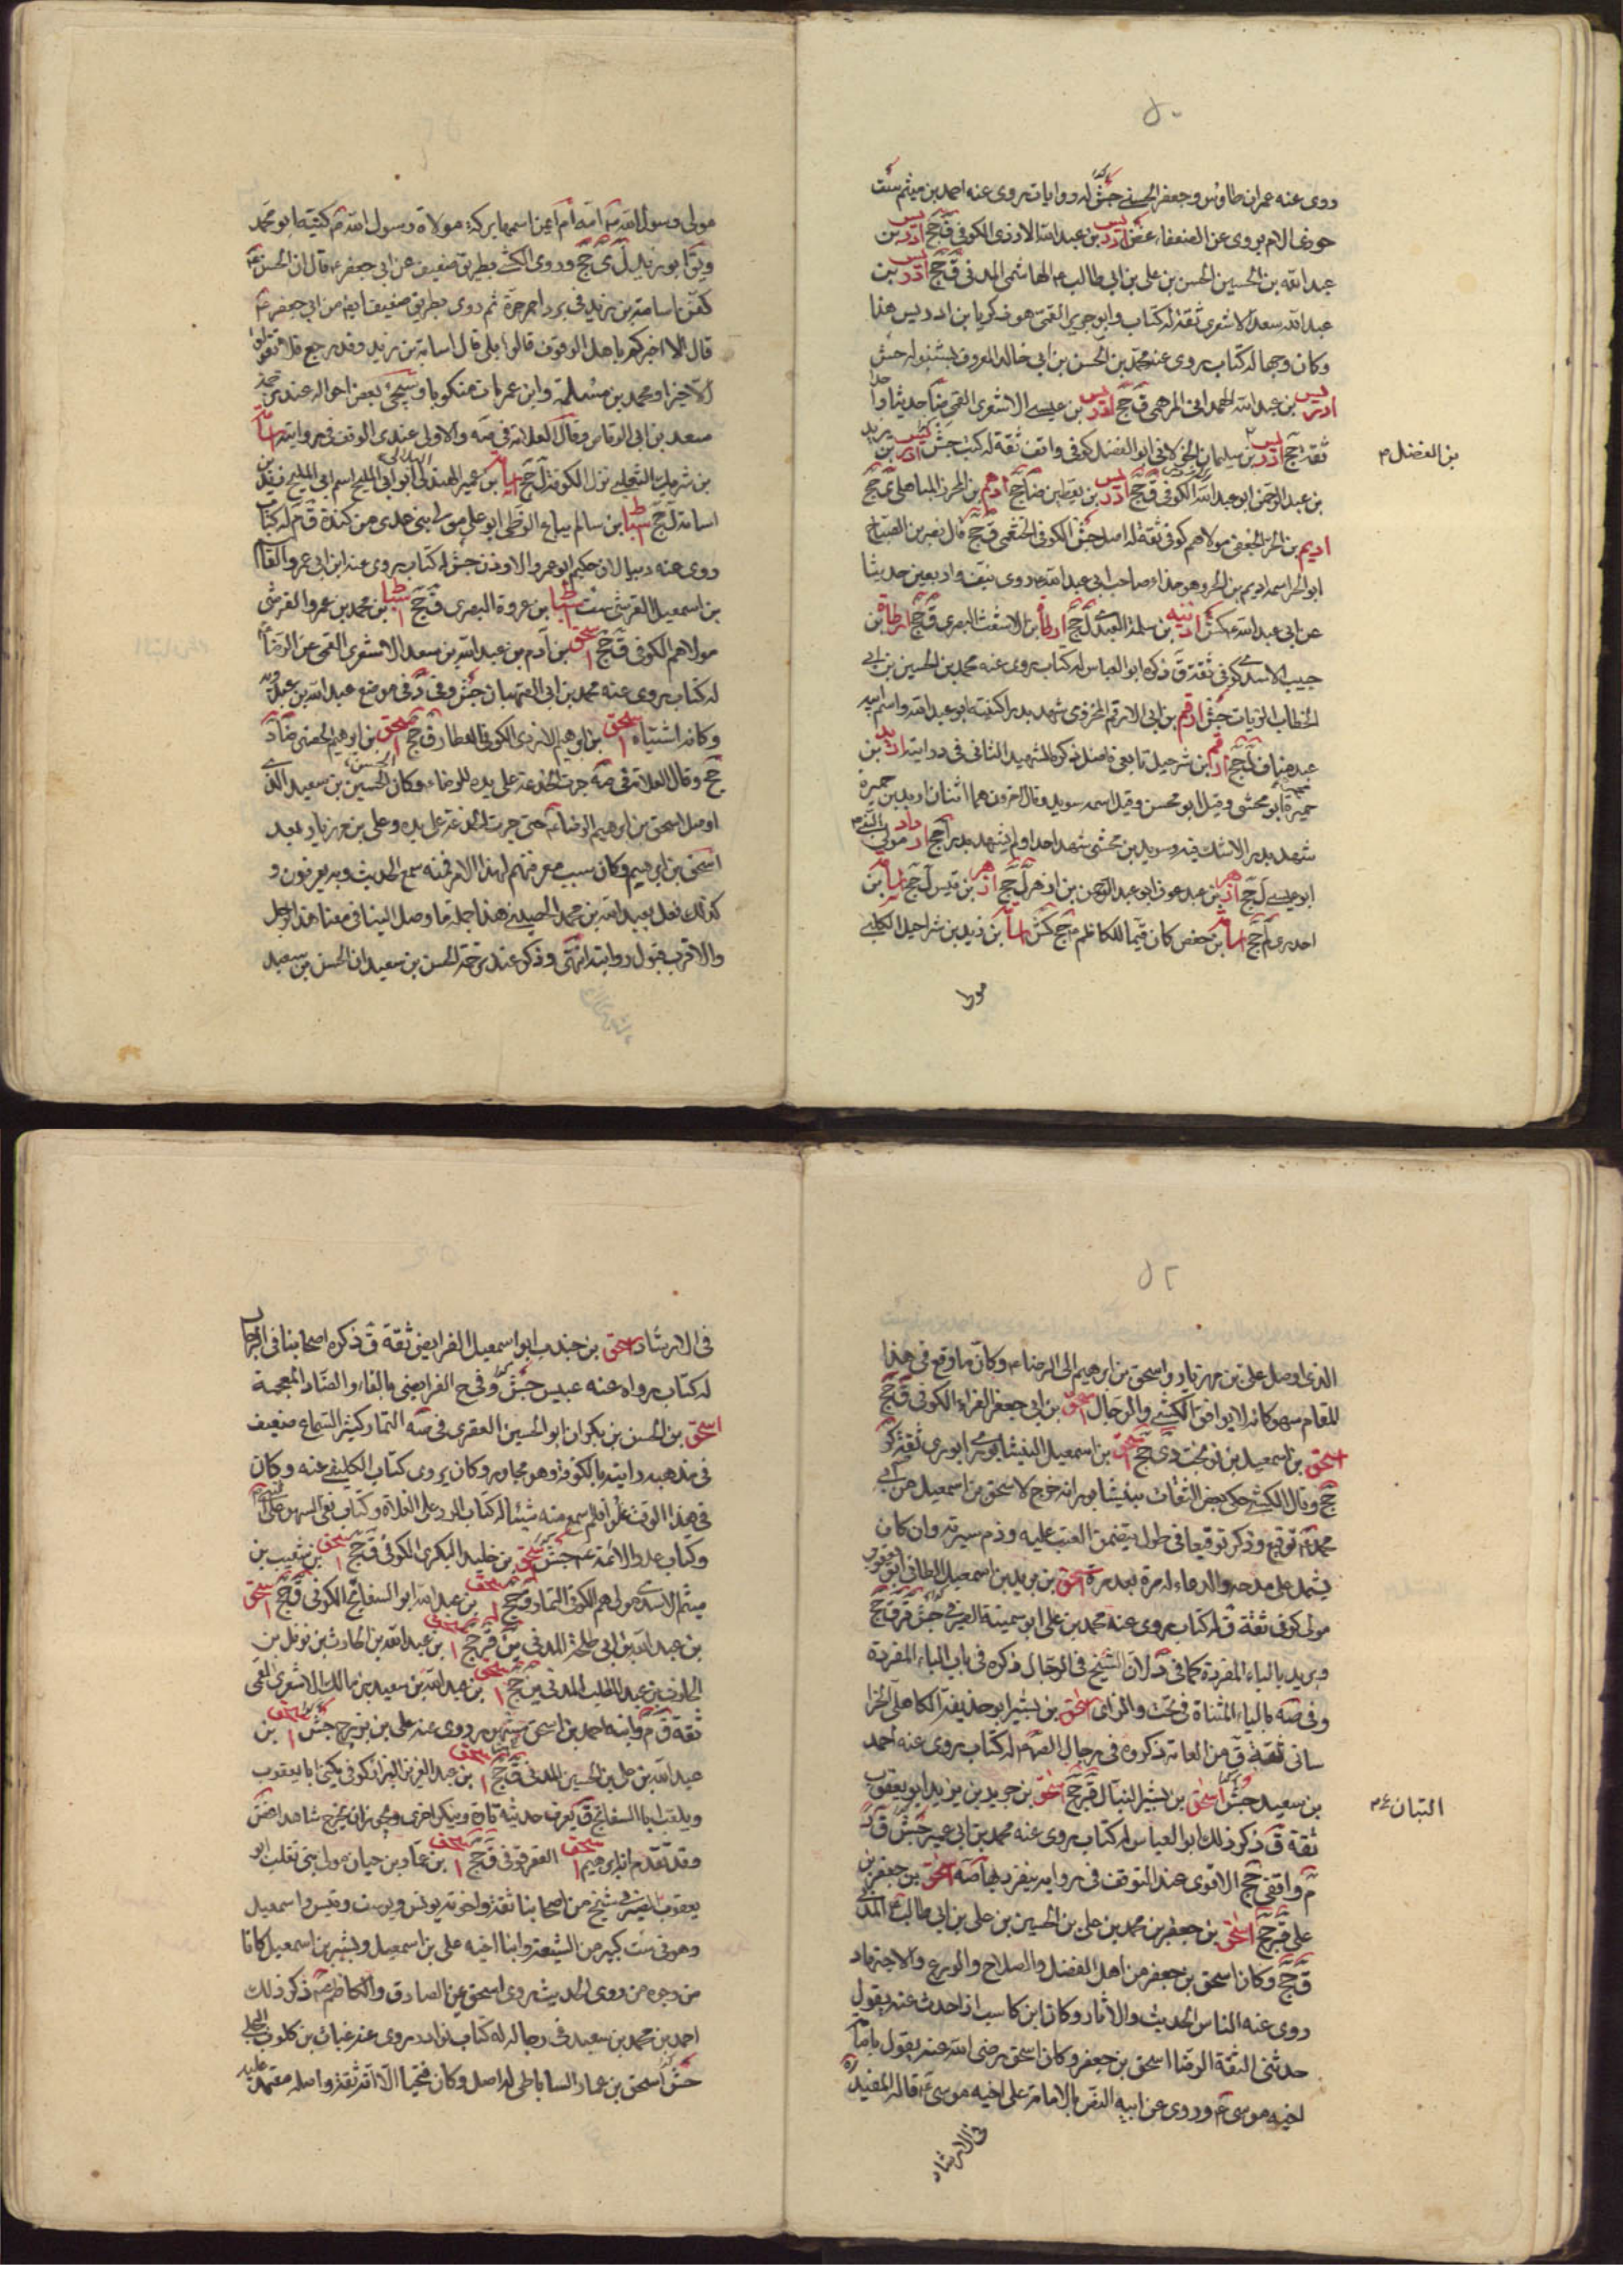 روى عنه عمران طاوس وجعفر الحسنى جش له روايات يروى عنه احمد بن ميثم ست
بن عبد الله الازدى الكوفى ق جج ادريس بن
عبد الله بن الحسين الحسن بن على بن ابى طالب ع الهاشمى المدنى ق جج ادريس بن
عبد الله سعد الاشعرى ثقة له كتاب وابو جرير القمى هو زكريا بن ادريس هذا
وكان وجها له كتاب يروى عنه محمد بن الحسن بن ابى خالد المعروف بشنبوله جش
ادريس بن عبد الله الهمدانى المرهبى ق جج ادريس بن عيسى الاشعرى القمى ضا
ثقة جج ادريس بن سليمان الخولانى ابو الفضل كوفى واقف ثقة له كتب جش ادريس بن يزيد
بن الفضل
بن عبد الرحمن ابو عبد الله الكوفى ق جج ادريس بن يقطين ضا جج ادهم بن
اديم بن الحر الجعفى مولاهم كوفى ثقة له اصل جش الكوفى الخثعمى ق جج قال نصر بن الصباح
ابو الحر اسمه اديم بن الحر وهو حذاء صاحب ابى عبد الله ع روى نيف واربعين حديثا
عن ابى عبد الله ع كش بن سلمة العبدى ل جج ارطاة بن الاشعث البصرى ق جج ارطاة بن
حبيب الاسدى كوفى ثقة ق ذكره ابو العباس له كتاب يروى عنه محمد بن الحسين بن ابى
الخطاب الزيات جش ارقم بن ابى الارقم المخزومى شهد بدرا كنيته ابو عبد الله واسم ابيه
عبد مناف ل جج ارقم بن شرحبيل تابعى فاضل ذكره الشهيد الثانى فى درايته اربد بن
حميرة ابو مخشى وقيل ابو محسن وقيل اسمه سويد وقال اخرون هما اثنان اربد بن حميرة
شهد بدرا لاشك فيه وسويد بن مخشى شهد احدا ولم يشهد بدرا جج ازداد مولى
ابو عيسى ل جج ازهر بن عبد عوف ابو عبد الرحمن بن ازهر ل جج ازهر بن قيس ل جج اسامة بن
احدرى ل جج اسامة بن حفص كان قيما للكاظم م جج كش اسامة بن زيد بن شراحيل الكلبى
مولى
مولى رسول الله ص امه ام ايمن اسمها بركة مولاة رسول الله ص كنيته ابو محمد
ويق ابو زيد ل ى جج وروى الكشى بطريق ضعيف عن ابى جعفر ع قال ان الحسن ع
كفن اسامة بن زيد فى برد احمر حبرة ثم روى بطريق ضعيف ايضا عن ابى جعفر ع
قال الا اخبركم باهل الوقوف قالوا بلى قال اسامة بن زيد وقد رجع فلا تقولوا
الا خيرا ومحمد بن مسلمة وابن عمر مات منكوبا وسيجئ بعض احواله عند ترجمة
سعد بن ابى الوقاص وقال العلامة فى صه والاولى عندى الوقف فى روايته اسامة
بن شريك الثعلبى نزل الكوفة ل جج اسامة بن عمير الهذلى ابو ابى المليح اسم ابى المليح زيد بن
اسامة ل جج اسباط بن سالم بياع الزطى ابو على مولى بنى عدى من كندة ق م له كتاب
بن اسمعيل القرشى ست اسباط بن عروة البصرى ق جج اسباط بن محمد بن عمرو القرشى
مولاهم الكوفى ق جج اسحق بن آدم بن عبد الله بن سعد الاشعرى القمى عن الرضا ع
له كتاب يروى عنه محمد بن ابى الصهبان جش وفى د فى موضع عبد الله بن عبد ربه
وكانه اشتباه اسحق بن ابرهيم الازدى الكوفى العطار ق جج اسحق بن ابرهيم الحضينى ضا د
جج وقال العلامة فى صه جرت الخدمة على يده للرضا ع وكان الحسين بن سعيد الذى
اوصل اسحق بن ابرهيم الرضا ع حتى جرت الخدمة على يده وعلى بن مهزيار بعد
اسحق بن ابرهيم وكان سبب معرفتهم لهذا الامر فمنه سمع الحديث وبه يعرفون و
كذلك فعل بعبد الله بن محمد الحضينى هذا جملة ما وصل الينا فى معنا هذا الرجل
والاقرب قبول روايته انتهى وذكر عند ترجمة الحسن بن سعيد ان الحسن بن سعيد
الذى اوصل على بن مهزيار واسحق بن ابرهيم الى الرضا ع وكان ما وقع فى هذا
المقام سهو كانه لا يوافق الكشى والرجال اسحق بن ابى جعفر الفراء الكوفى ق جج
اسحق بن اسمعيل بن نوبخت دى جج اسحق بن اسمعيل النيشابورى ثقة كر
جج وقال الكشى حكى بعض الثقات بنيشابور انه خرج لاسحق بن اسمعيل من ابى
محمد ع توقيع وذكر توقيعا فى طول يتضمن العتب عليه وذم سيرته وان كان
يشمل على مدحه والدعاء له مرة بعد مرة اسحق بن بريد بن اسمعيل الطائى ابو يعقوب
مولى كوفى ثقة ق له كتاب يروى عنه محمد بن على ابو سمينة الصيرفى جش قر ق جج
وبريد بالباء المفردة كما فى د لان الشيخ فى الرجال ذكره فى باب الباء المفردة
وفى صه بالياء المثناة فى تحت والزاى اسحق بن بشير ابو حذيفة الكاهلى الخرا
سانى ثقة ق من العامة ذكروه فى رجال الصادق ع له كتاب يروى عنه احمد
بن سعيد جش اسحق بن بشير النبال قر جج اسحق بن جرير بن يزيد ابو يعقوب
النبال
ثقة ق ذكر ذلك ابو العباس له كتاب يروى عنه محمد بن ابى عمير جش ق د
م واقفى جج الاقوى عند التوقف فى رواية ينفرد بها صه اسحق بن جعفر بن
على ق جج اسحق بن جعفر بن محمد بن على بن الحسين بن على بن ابى طالب ع المدنى
ق جج وكان اسحق بن جعفر من اهل الفضل والصلاح والورع والاجتهاد
روى عنه الناس الحديث والاثار وكان ابن كاسب اذا حدث عنه يقول
حدثنى الثقة الرضا اسحق بن جعفر وكان اسحق رضى الله عنه يقول بامامة
اخيه موسى ع وروى عن ابيه النص بالامامة على اخيه موسى ع قاله المفيد ره
فى الارشاد
فى الارشاد اسحق بن جندب ابو اسمعيل الفرايضى ثقة ق ذكره اصحابنا فى الرجال
له كتاب رواه عنه عبيس جش وفى ح الفرايضى بالفاء والضاد المعجمة
اسحق بن الحسن بن بكران ابو الحسين العقرى فى صه التمار كثير السماع ضعيف
فى مذهبه رايته بالكوفة وهو مجاور وكان يروى كتاب الكلينى عنه وكان
فى هذا الوقت علوا فلم اسمع منه شيئا له كتاب الرد على الغلاة وكتاب نفى السهو عن النبى
وكتاب عدد الائمة ع جش اسحق بن خليد البكرى الكوفى ق جج اسحق بن شعيب بن
ميثم الاسدى مولاهم الكوفى التمار ق جج اسحق بن عبد الله ابو السفاتج الكوفى ق جج اسحق
بن عبد الله بن ابى طلحة المدنى ين قر جج اسحق بن عبد الله بن الحارث بن نوفل بن
الحارث بن عبد المطلب المدنى ين جج اسحق بن عبد الله بن سعيد بن مالك الاشعرى القمى
ثقة ق م وابنه احمد بن اسحق روى عنه على بن بزرج جش اسحق بن
عبد الله بن على بن الحسين المدنى ق جج اسحق بن عبد العزيز البزاز كوفى يكنى ابا يعقوب
ويلقب ابا السفاتج ق يعرف حديثه تارة وينكر اخرى ويجوز ان يخرج شاهدا غض
وقد تقدم انه ابرهيم اسحق العقرقوفى ق جج اسحق بن عمار بن حيان مولى بنى تغلب ابو
يعقوب الصيرفى شيخ من اصحابنا ثقة واخوته يونس ويوسف وقيس واسمعيل
وهو فى بيت كبير من الشيعة وابنا اخيه على بن اسمعيل وبشير بن اسمعيل كانا
من وجوه من روى الحديث روى اسحق عن الصادق والكاظم ع ذكر ذلك
احمد بن محمد بن سعيد فى رجاله له كتاب نوادر يروى عنه غياث بن كلوب البجلى
جش اسحق بن عمار الساباطى له اصل وكان فطحيا الا انه ثقة واصله معتمد عليه